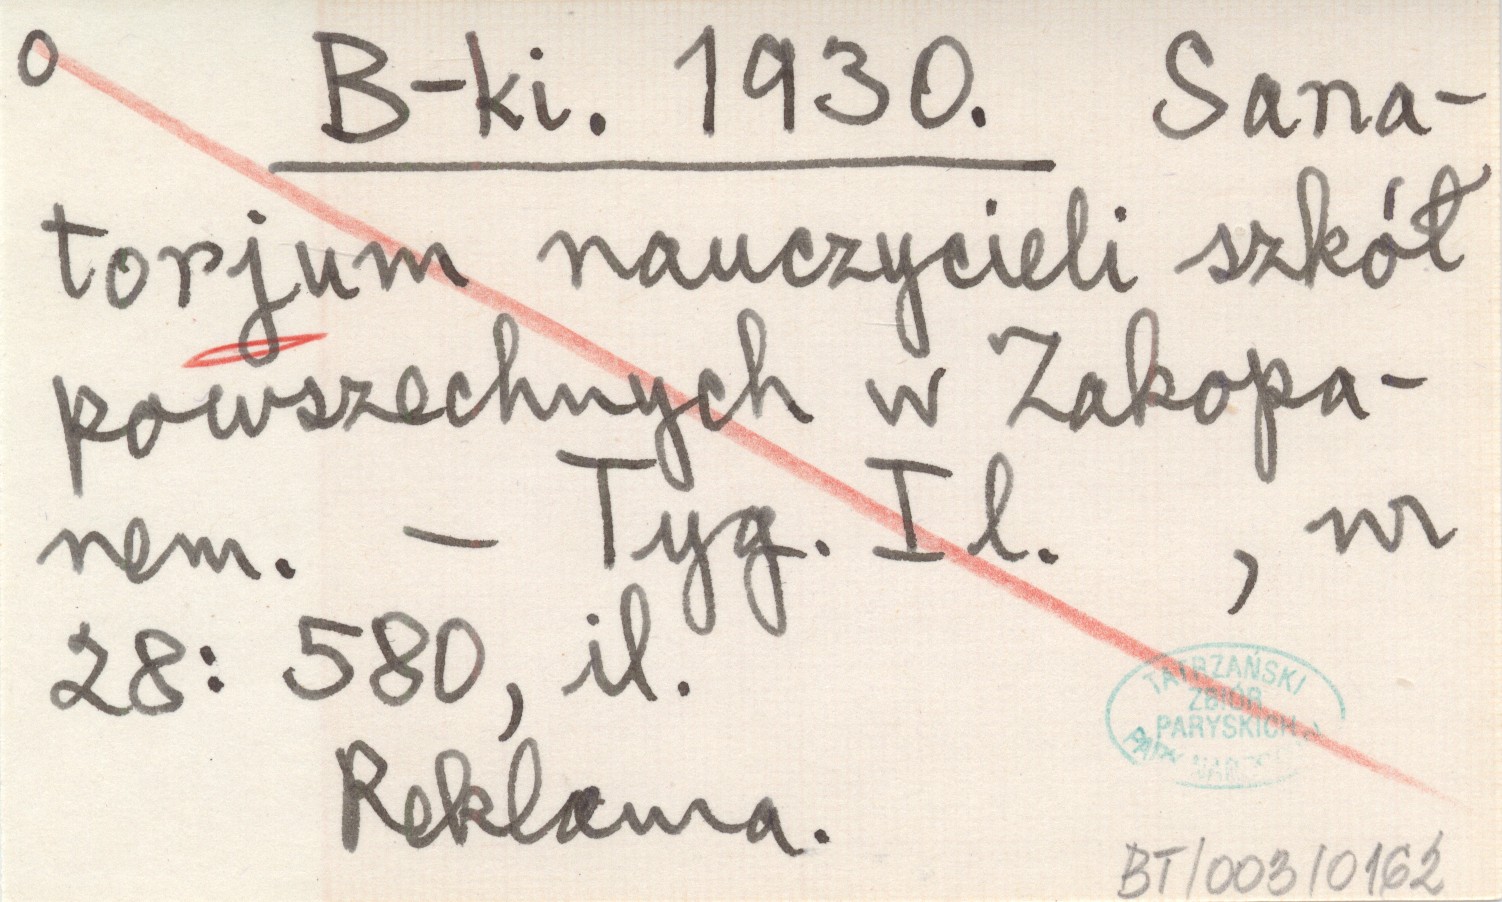 o B-ki. 1930. Sana-
torjum nauczycieli szkół
powszechnych w Zakopa-
nem. - Tyg. Il. , nr
28: 580, il.
Reklama.
TATRZAŃSKI
ZBIÓR
PARYSKICH
BT/003/0162